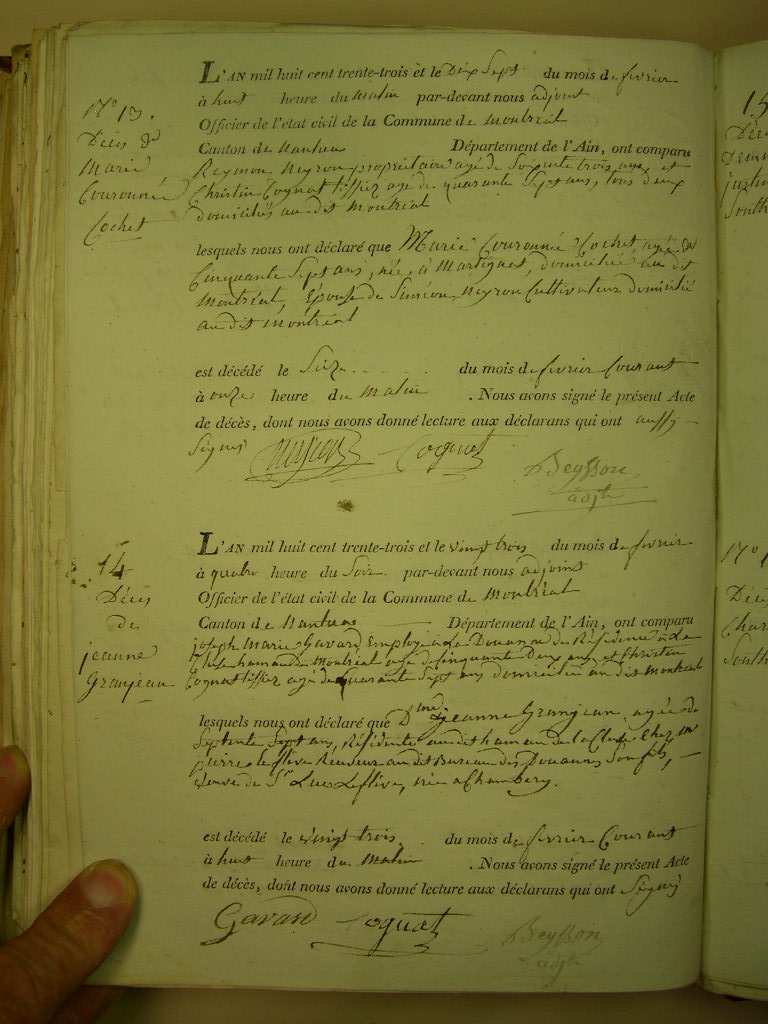 N° 13.
Décès de
Marie
Couronnée
Cochet
L'AN mil huit cent trente-trois et le Dix Sept du mois de fevrier
à huit heure du Matin par-devant nous adjoint
Officier de l'état civil de la Commune de Montréal
Canton de Nantua Département de l'Ain, ont comparu
Reymon Neyron propriétaire agé de Soixente trois ans et
Christin Cognat tissier agé de quarante Sept ans, tous deux
domiciliés au dit Montréal
lesquels nous ont déclaré que Marie Couronnée Cochet agée de
Cinquante Sept ans, née à Martignat, domiciliée au dit
Montréal, Épouse de Siméon Neyron Cultivateur domicilié
au dit Montréal
est décédé le Sèze du mois de fevrier Courant
à onze heure du Matin . Nous avons signé le présent Acte
de décès, dont nous avons donné lecture aux déclarans qui ont aussy
Signés
Cognat
Beysson
adjt
14
Décès
de
jeanne
Granjean
L'AN mil huit cent trente-trois et le vingt trois du mois de fevrier
à quatre heure du Soir par-devant nous adjoint
Officier de l'état civil de la Commune de Montréal
Canton de Nantua Département de l'Ain, ont comparu
joseph Marie Gavard Employé a La Douane de Résidence à La
Cluse hamau de Montréal agé de Cinquante Deux ans et Christin
Cognat tissier agé de quarante Sept ans domicilié au dit Montréal
lesquels nous ont déclaré que Dme jeanne Granjean, agée de
Septente Sept ans, Résidente au dit hamau de la Cluse Chez Mr
pierre Leflive Receveur au dit Bureau des Douanes Son fils,
Veuve de Sr Luc Leflive, née a Chambery.
est décédé le vingt trois du mois de fevrier Courant
à huit heure du Matin . Nous avons signé le présent Acte
de décès, dont nous avons donné lecture aux déclarans qui ont Signés
Gavard Cognat
Beysson
adjt
15
N° 1